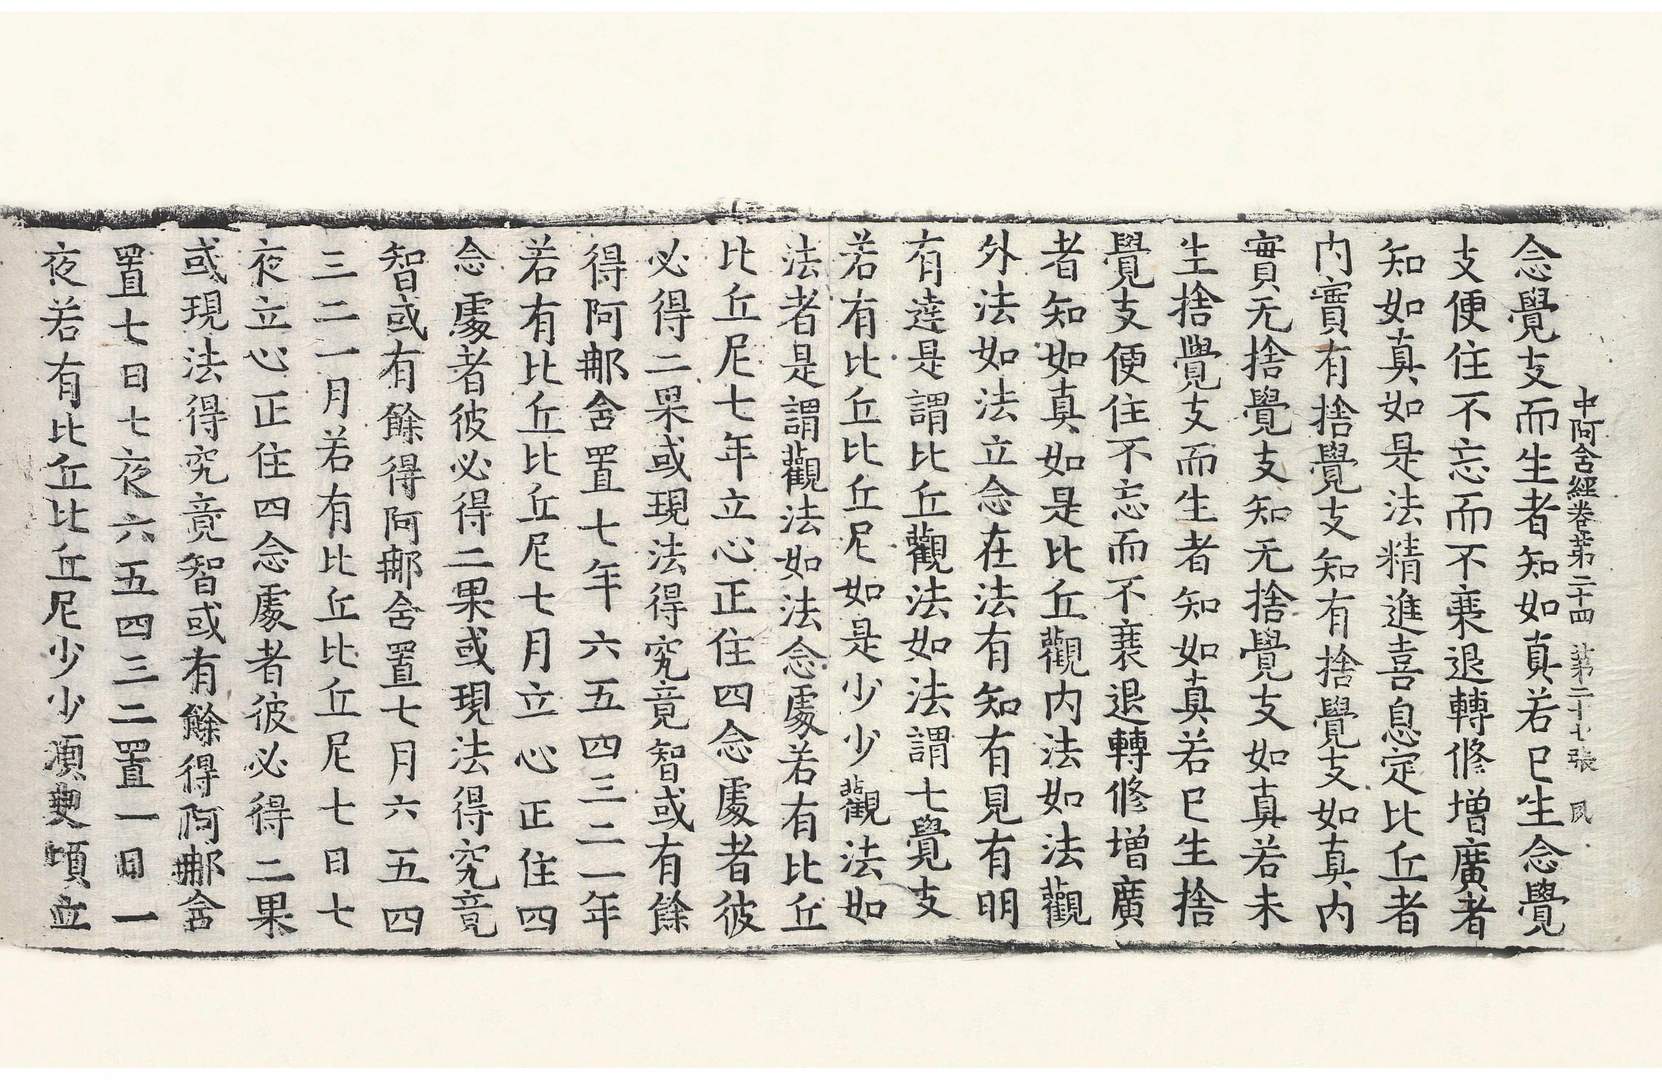 中阿含經卷第二十四 第二十七張 夙
念覺支而生者知如真若已生念覺
支便住不忘而不衰退轉修增廣者
知如真如是法精進喜息定比丘者
内實有捨覺支知有捨覺支如真内
實无捨覺支知无捨覺支如真若未
生捨覺支而生者知如真若已生捨
覺支便住不忘而不衰退轉修增廣
者知如真如是比丘觀内法如法觀
外法如法立念在法有知有見有明
有達是謂比丘觀法如法謂七覺支
若有比丘比丘尼如是少少觀法如
法者是謂觀法如法念處若有比丘
比丘尼七年立心正住四念處者彼
必得二果或現法得究竟智或有餘
得阿那含置七年六五四三二一年
若有比丘比丘尼七月立心正住四
念處者彼必得二果或現法得究竟
智或有餘得阿那含置七月六五四
三二一月若有比丘比丘尼七日七
夜立心正住四念處者彼必得二果
或現法得究竟智或有餘得阿那含
置七日七夜六五四三二置一日一
夜若有比丘比丘尼少少須臾頃立